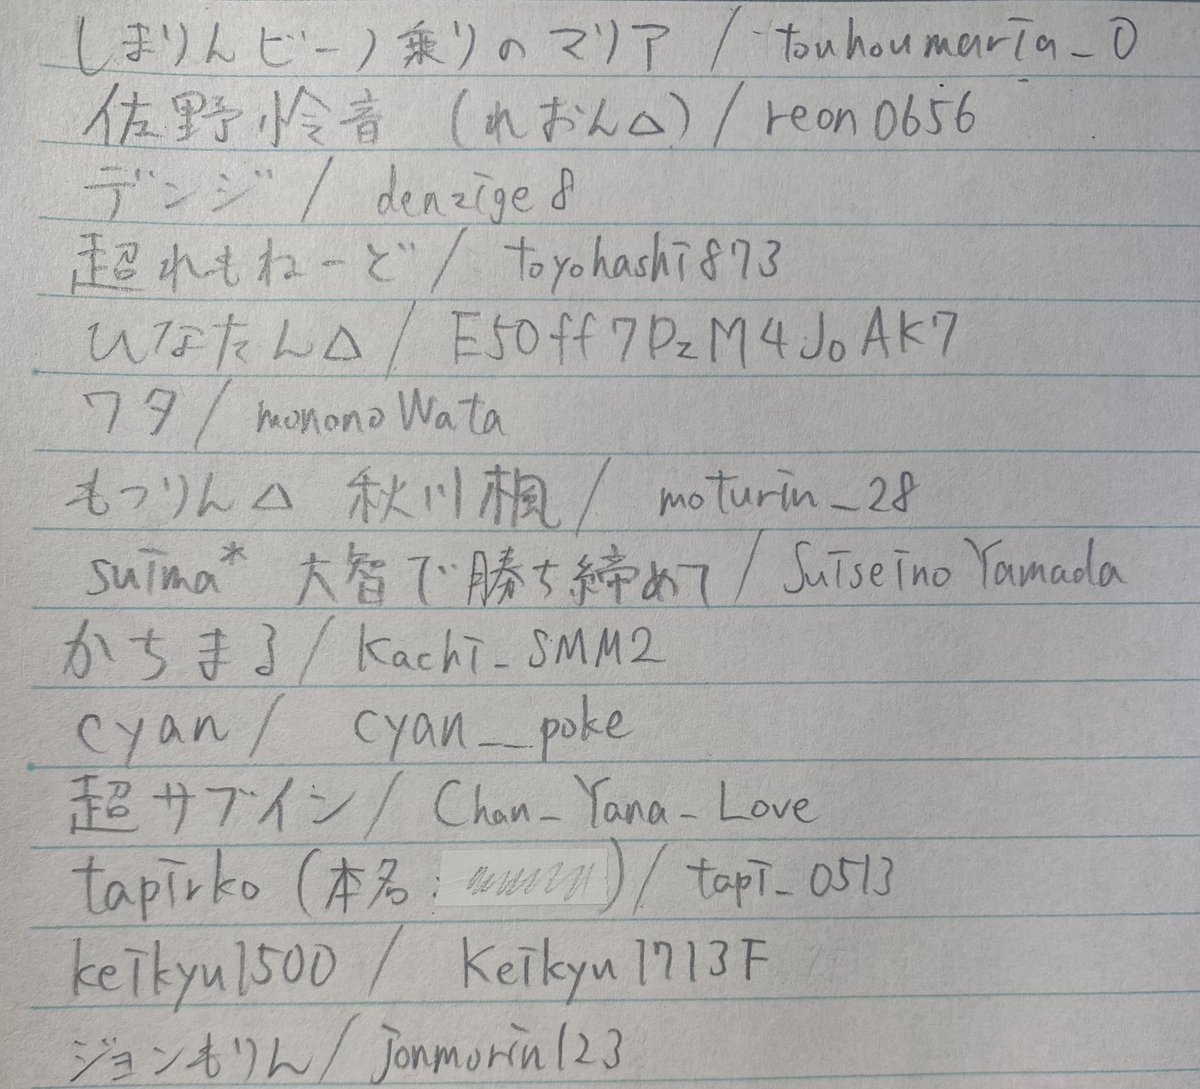 しまりんビーノ乗りのマリア / touhoumaria_0
佐野怜音 (れおん△) / reon0656
デンジ / denzige8
超れもねーど / toyohashi873
ひなたん△ / E50ff7DzM4JoAK7
ワタ / mononoWata
もつりん△ 秋川楓 / moturin_28
suima* 大智で勝ち締めて / SuiseinoYamada
かちまる / Kachi_SMM2
cyan / cyan__poke
超サブイシ / Chan_Yana_Love
tapirko (本名: ) / tapi_0513
keikyu1500 / Keikyu1713F
ジョンもりん / jonmorin123